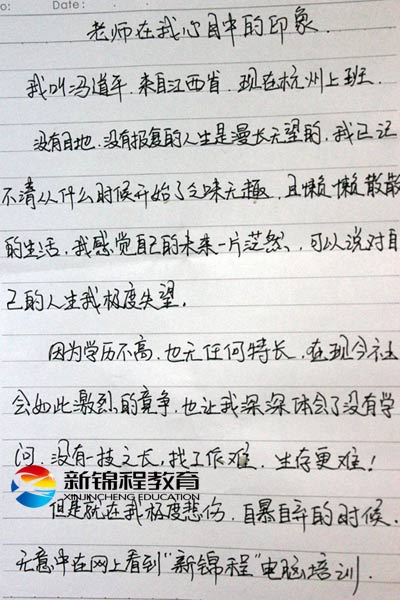 No:
Date:
老师在我心目中的印象.
我叫冯道平.来自江西省.现在杭州上班.
没有目地.没有报复的人生是漫长无望的.我已记
不清从什么时候开始了乏味无趣.且懒懒散散
的生活.我感觉自己的未来一片茫然、可以说对自
己的人生我极度失望.
因为学历不高.也无任何特长.在现今社
会如此激烈的竞争.也让我深深体会了没有学
问.没有一技之长.找工作难.生存更难!
新锦程教育
XINJINCHENG EDUCATION
但是就在我极度悲伤.自暴自弃的时候.
无意中在网上看到"新锦程"电脑培训.